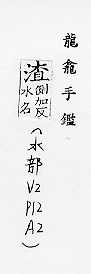 龍龕手鑑
渣
側加反
水名
(水部
V2
P12
A2)